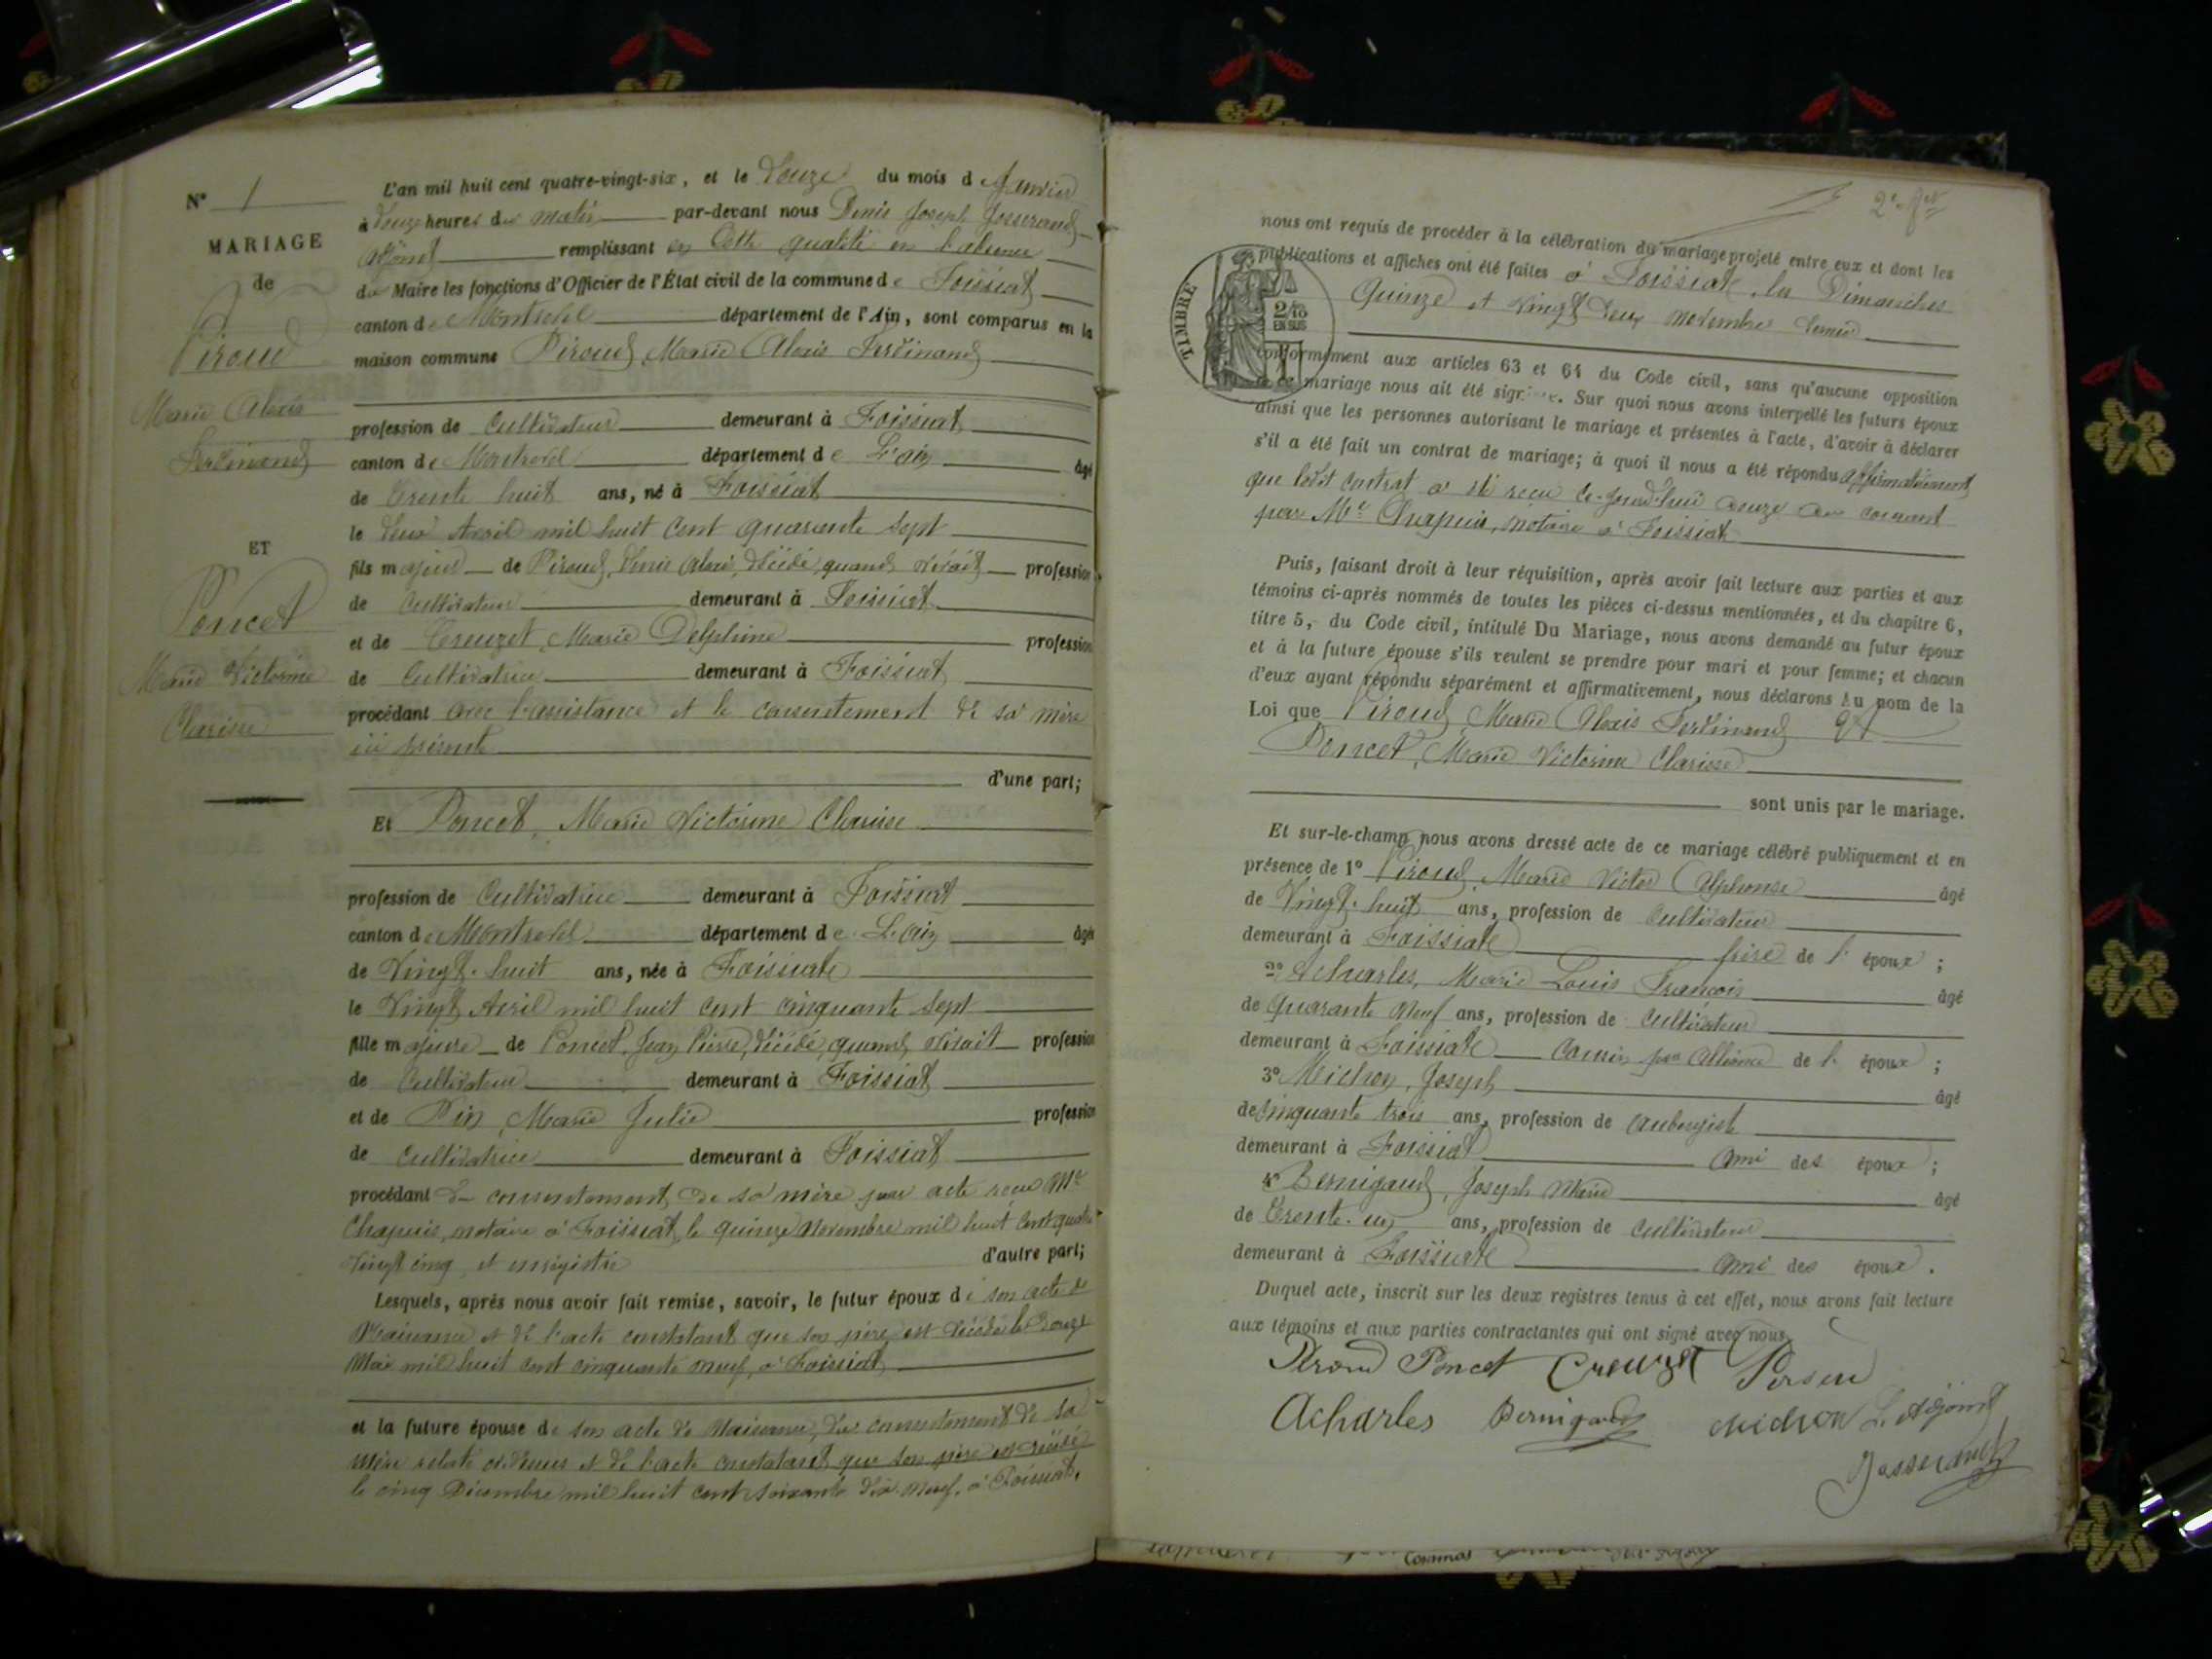 N° 1
MARIAGE
de
Piroud
Marie Alexis
Ferdinand
ET
Poncet
Marie Victorine
Clarisse
L'an mil huit cent quatre-vingt-six, et le Douze du mois de Janvier
à Onze heures du matin par-devant nous Denis Joseph Josserand
adjoint remplissant en Cette qualité en l'absence
du Maire les fonctions d'Officier de l'État civil de la commune de Foissiat
canton de Montrevel département de l'Ain, sont comparus en la
maison commune Piroud, Marie Alexis Ferdinand
profession de Cultivateur demeurant à Foissiat
canton de Montrevel département de L'ain âgé
de Trente huit ans, né à Foissiat
le deux Avril mil huit Cent quarante Sept
fils majeur de Piroud, Denis Alexis, décédé, quand vivait profession
de Cultivateur demeurant à Foissiat
et de Creuzet, Marie Delphine profession
de Cultivatrice demeurant à Foissiat
procédant avec l'assistance et le consentement de sa mère
ici présente
d'une part;
Et Poncet, Marie Victorine Clarisse
profession de Cultivatrice demeurant à Foissiat
canton de Montrevel département de L'ain âgée
de Vingt-huit ans, née à Foissiat
le Vingt Avril mil huit cent cinquante Sept
fille majeure de Poncet, Jean Pierre, décédé, quand vivait profession
de Cultivateur demeurant à Foissiat
et de Pin, Marie Julie profession
de Cultivatrice demeurant à Foissiat
procédant du consentement de sa mère par acte reçu Me
Chapuis, notaire à Foissiat, le quinze Novembre mil huit Cent quatre
Vingt cinq, et enregistré d'autre part;
Lesquels, après nous avoir fait remise, savoir, le futur époux de son acte de
Naissance et de l'acte constatant que son père est décédé le Douze
Mai mil huit cent cinquante neuf, à Foissiat
et la future épouse de son acte de Naissance, du consentement de sa
mère relaté ci-dessus et de l'acte constatant que son père est décédé
le cinq Décembre mil huit cent soixante dix-neuf, à Foissiat,
nous ont requis de procéder à la célébration du mariage projeté entre eux et dont les
publications et affiches ont été faites à Foissiat, les Dimanches
Quinze et Vingt deux novembre dernier
TIMBRE
2/10
EN SUS
conformément aux articles 63 et 64 du Code civil, sans qu'aucune opposition
à ce mariage nous ait été signifiée. Sur quoi nous avons interpellé les futurs époux
ainsi que les personnes autorisant le mariage et présentes à l'acte, d'avoir à déclarer
s'il a été fait un contrat de mariage; à quoi il nous a été répondu affirmativement
que ledit contrat a été reçu ce-jourd'hui douze du courant
par Me Chapuis, notaire à Foissiat
Puis, faisant droit à leur réquisition, après avoir fait lecture aux parties et aux
témoins ci-après nommés de toutes les pièces ci-dessus mentionnées, et du chapitre 6,
titre 5, du Code civil, intitulé Du Mariage, nous avons demandé au futur époux
et à la future épouse s'ils veulent se prendre pour mari et pour femme; et chacun
d'eux ayant répondu séparément et affirmativement, nous déclarons au nom de la
Loi que Piroud, Marie Alexis Ferdinand Et
Poncet, Marie Victorine Clarisse
sont unis par le mariage.
Et sur-le-champ nous avons dressé acte de ce mariage célébré publiquement et en
présence de 1° Piroud, Marie Victor Alphonse âgé
de Vingt-huit ans, profession de Cultivateur
demeurant à Foissiat frère de l'époux;
2° Acharles, Marie Louis François âgé
de Quarante Neuf ans, profession de Cultivateur
demeurant à Foissiat Cousin par Alliance de l'époux;
3° Michon, Joseph âgé
de Cinquante trois ans, profession de Aubergiste
demeurant à Foissiat Ami des époux;
4° Bernigaud, Joseph Marie âgé
de Trente-un ans, profession de Cultivateur
demeurant à Foissiat Ami des époux.
Duquel acte, inscrit sur les deux registres tenus à cet effet, nous avons fait lecture
aux témoins et aux parties contractantes qui ont signé avec nous
Piroud Poncet Creuzet
Acharles Bernigaud Michon L'Adjoint
Josserand